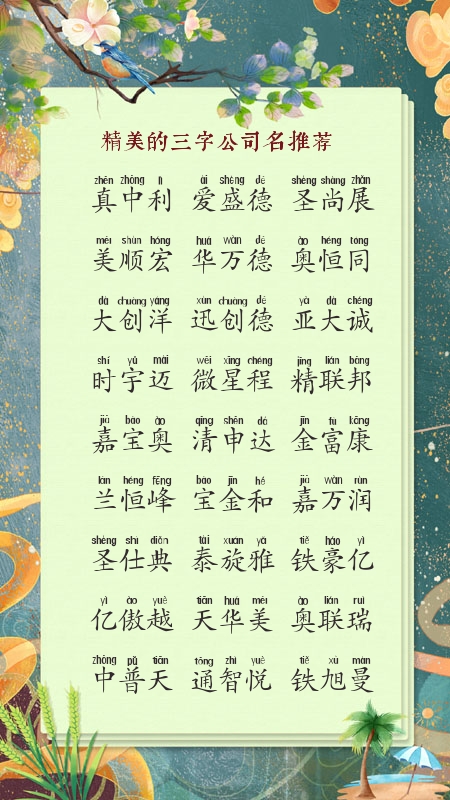 精美的三字公司名推荐
zhēn zhōng lì ài shèng dé shèng shàng zhǎn
真中利 爱盛德 圣尚展
měi shùn hóng huá wàn dé ào héng tóng
美顺宏 华万德 奥恒同
dà chuàng yáng xùn chuàng dé yà dà chéng
大创洋 迅创德 亚大诚
shí yǔ mài wēi xīng chéng jīng lián bāng
时宇迈 微星程 精联邦
jiā bǎo ào qīng shēn dá jīn fù kāng
嘉宝奥 清申达 金富康
lán héng fēng bǎo jīn hé jiā wàn rùn
兰恒峰 宝金和 嘉万润
shèng shì diǎn tài xuán yǎ tiě háo yì
圣仕典 泰旋雅 铁豪亿
yì ào yuè tiān huá měi ào lián ruì
亿傲越 天华美 奥联瑞
zhōng pǔ tiān tōng zhì yuè tiě xù màn
中普天 通智悦 铁旭曼